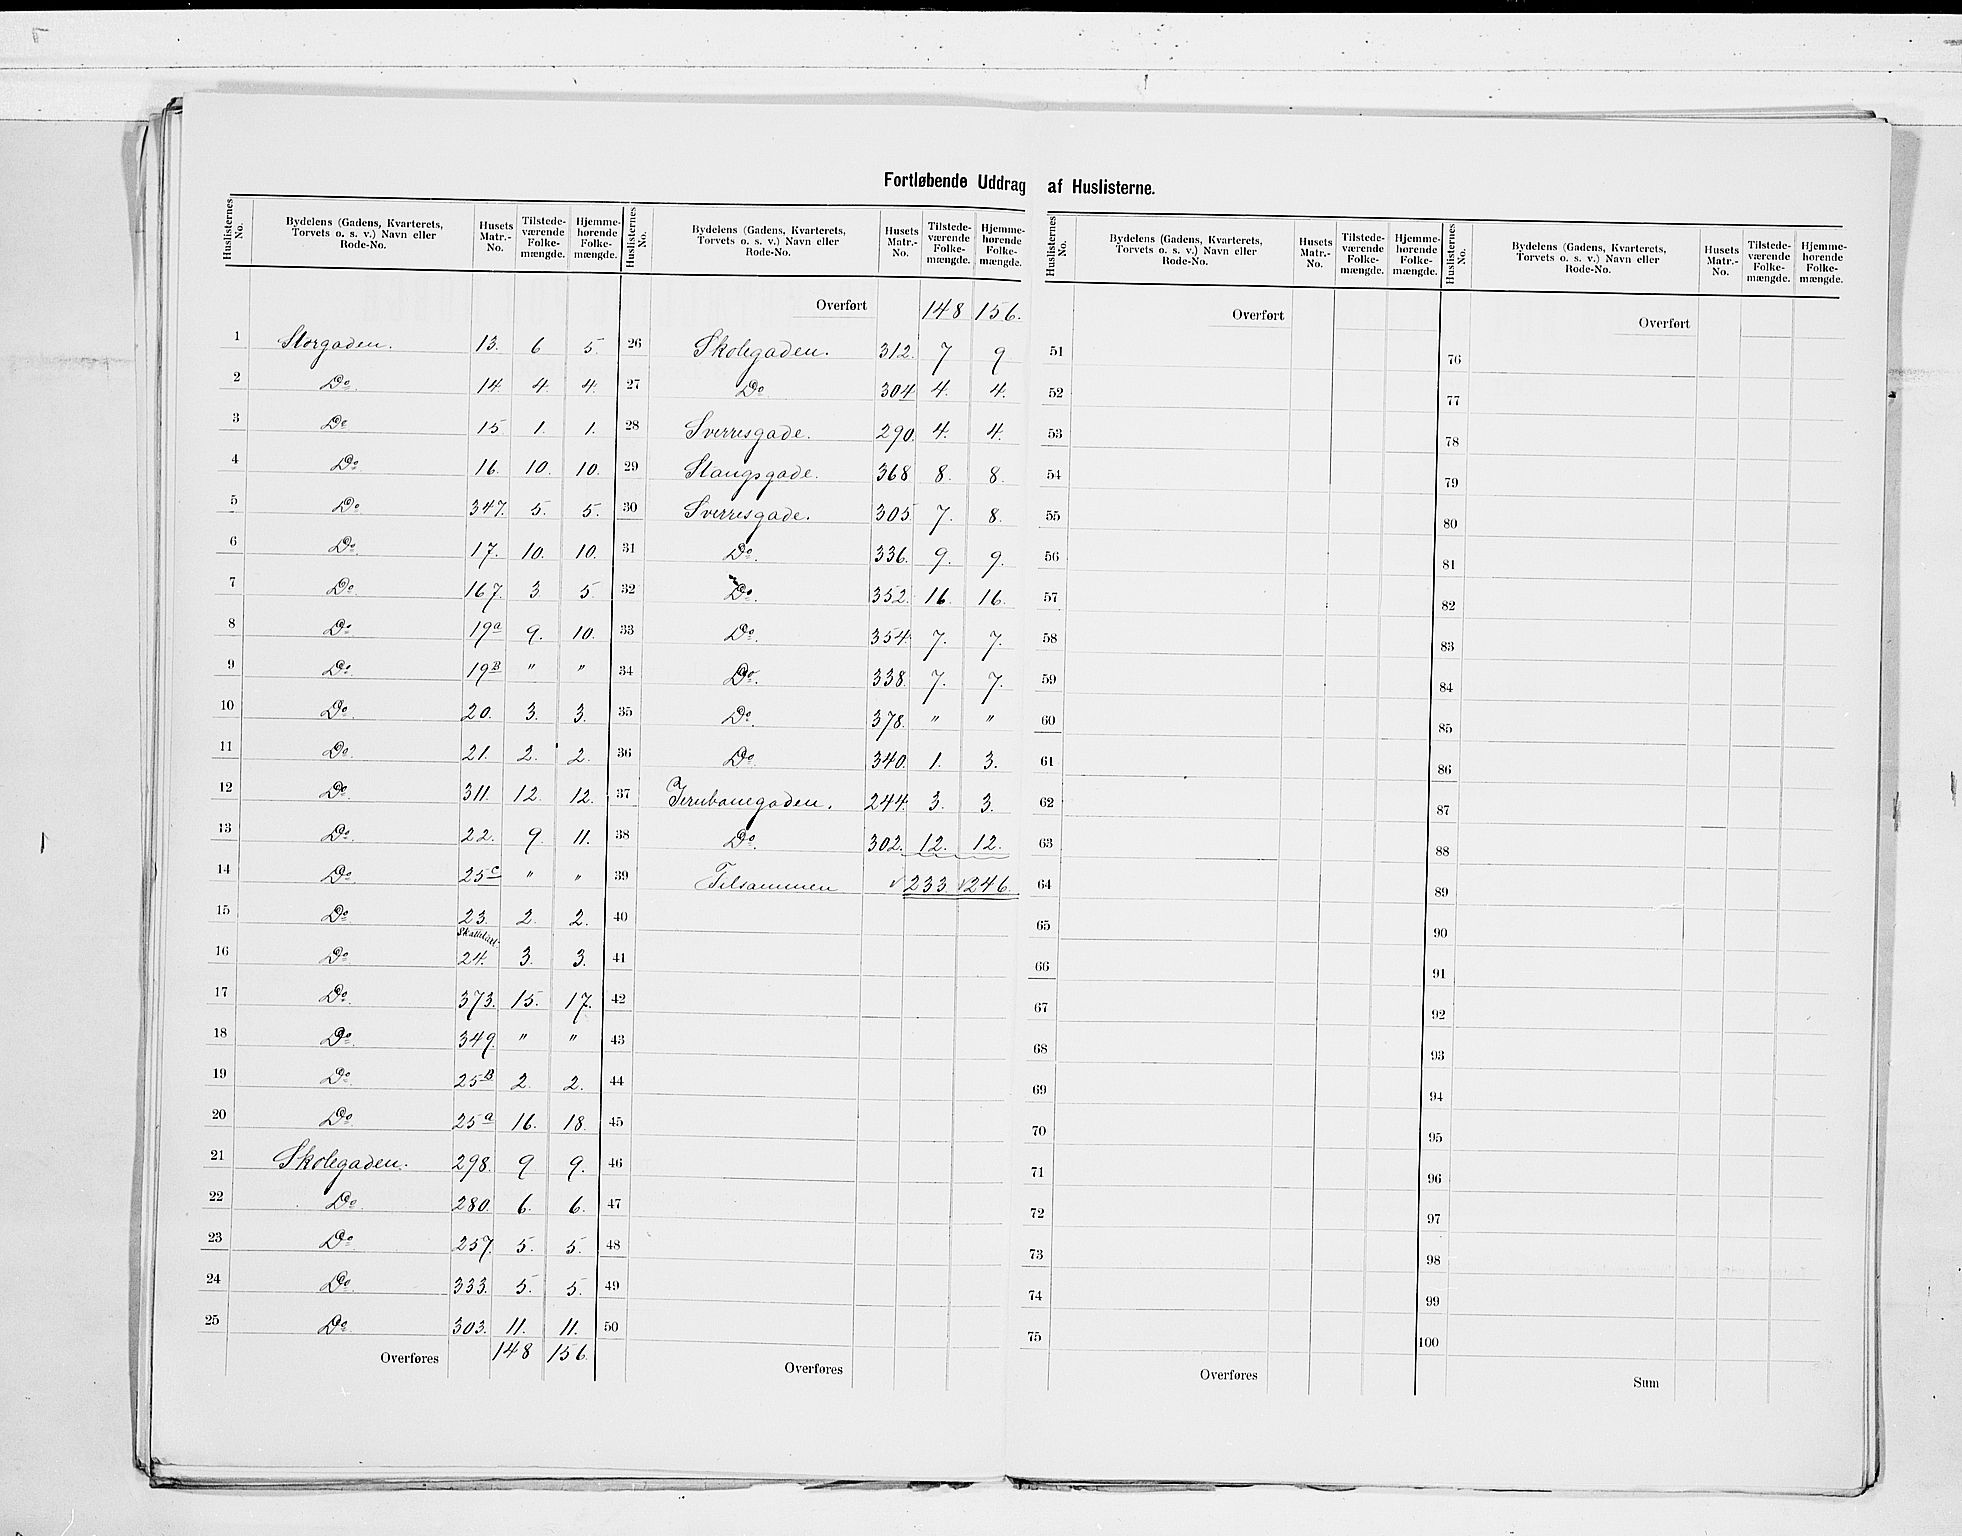 Fortløbende Uddrag af Huslisterne.
Huslisternes No. | Bydelens (Gadens, Kvarterets, Torvets o. s. v.) Navn eller Rode-No. | Husets Matr.-No. | Tilstedeværende Folkemængde. | Hjemmehørende Folkemængde.
1 Storgaden. 13. 6 5.
2 Do. 14. 4. 4.
3 Do 15. 1. 1.
4 Do. 16. 10. 10.
5 Do. 347. 5. 5.
6 Do. 17. 10. 10.
7 Do. 167. 3 5.
8 Do. 19a 9. 10.
9 Do. 19B " "
10 Do. 20. 3. 3.
11 Do. 21. 2. 2.
12 Do. 311. 12. 12.
13 Do. 22. 9. 11.
14 Do. 25c " "
15 Do. 23. 2. 2.
16 Do. 24. 3. 3.
17 Do. 373. 15. 17.
18 Do. 349. " "
19 Do. 25B 2. 2.
20 Do. 25a 16. 18.
21 Skolegaden. 298. 9 9.
22 Do. 280. 6. 6.
23 Do. 257. 5. 5.
24 Do. 333. 5. 5.
25 Do. 303. 11. 11.
Overføres 148 156.
Huslisternes No. | Bydelens (Gadens, Kvarterets, Torvets o. s. v.) Navn eller Rode-No. | Husets Matr.-No. | Tilstedeværende Folkemængde. | Hjemmehørende Folkemængde.
Overført 148 156.
26 Skolegaden. 312. 7 9
27 Do. 304 4. 4.
28 Sverresgade. 290. 4. 4.
29 Stangsgade. 368 8. 8.
30 Sverresgade. 305. 7. 8.
31 Do. 336. 9. 9.
32 Do. 352. 16. 16.
33 Do. 354. 7. 7.
34 Do. 338. 7. 7.
35 Do. 378. " "
36 Do. 340. 1. 3.
37 Jernbanegaden. 244. 3. 3.
38 Do. 302. 12. 12.
39 Tilsammen 233 246.
40
41
42
43
44
45
46
47
48
49
50
Overføres
Huslisternes No. | Bydelens (Gadens, Kvarterets, Torvets o. s. v.) Navn eller Rode-No. | Husets Matr.-No. | Tilstedeværende Folkemængde. | Hjemmehørende Folkemængde.
Overført
51
52
53
54
55
56
57
58
59
60
61
62
63
64
65
66
67
68
69
70
71
72
73
74
75
Overføres
Huslisternes No. | Bydelens (Gadens, Kvarterets, Torvets o. s. v.) Navn eller Rode-No. | Husets Matr.-No. | Tilstedeværende Folkemængde. | Hjemmehørende Folkemængde.
Overført
76
77
78
79
80
81
82
83
84
85
86
87
88
89
90
91
92
93
94
95
96
97
98
99
100
Sum